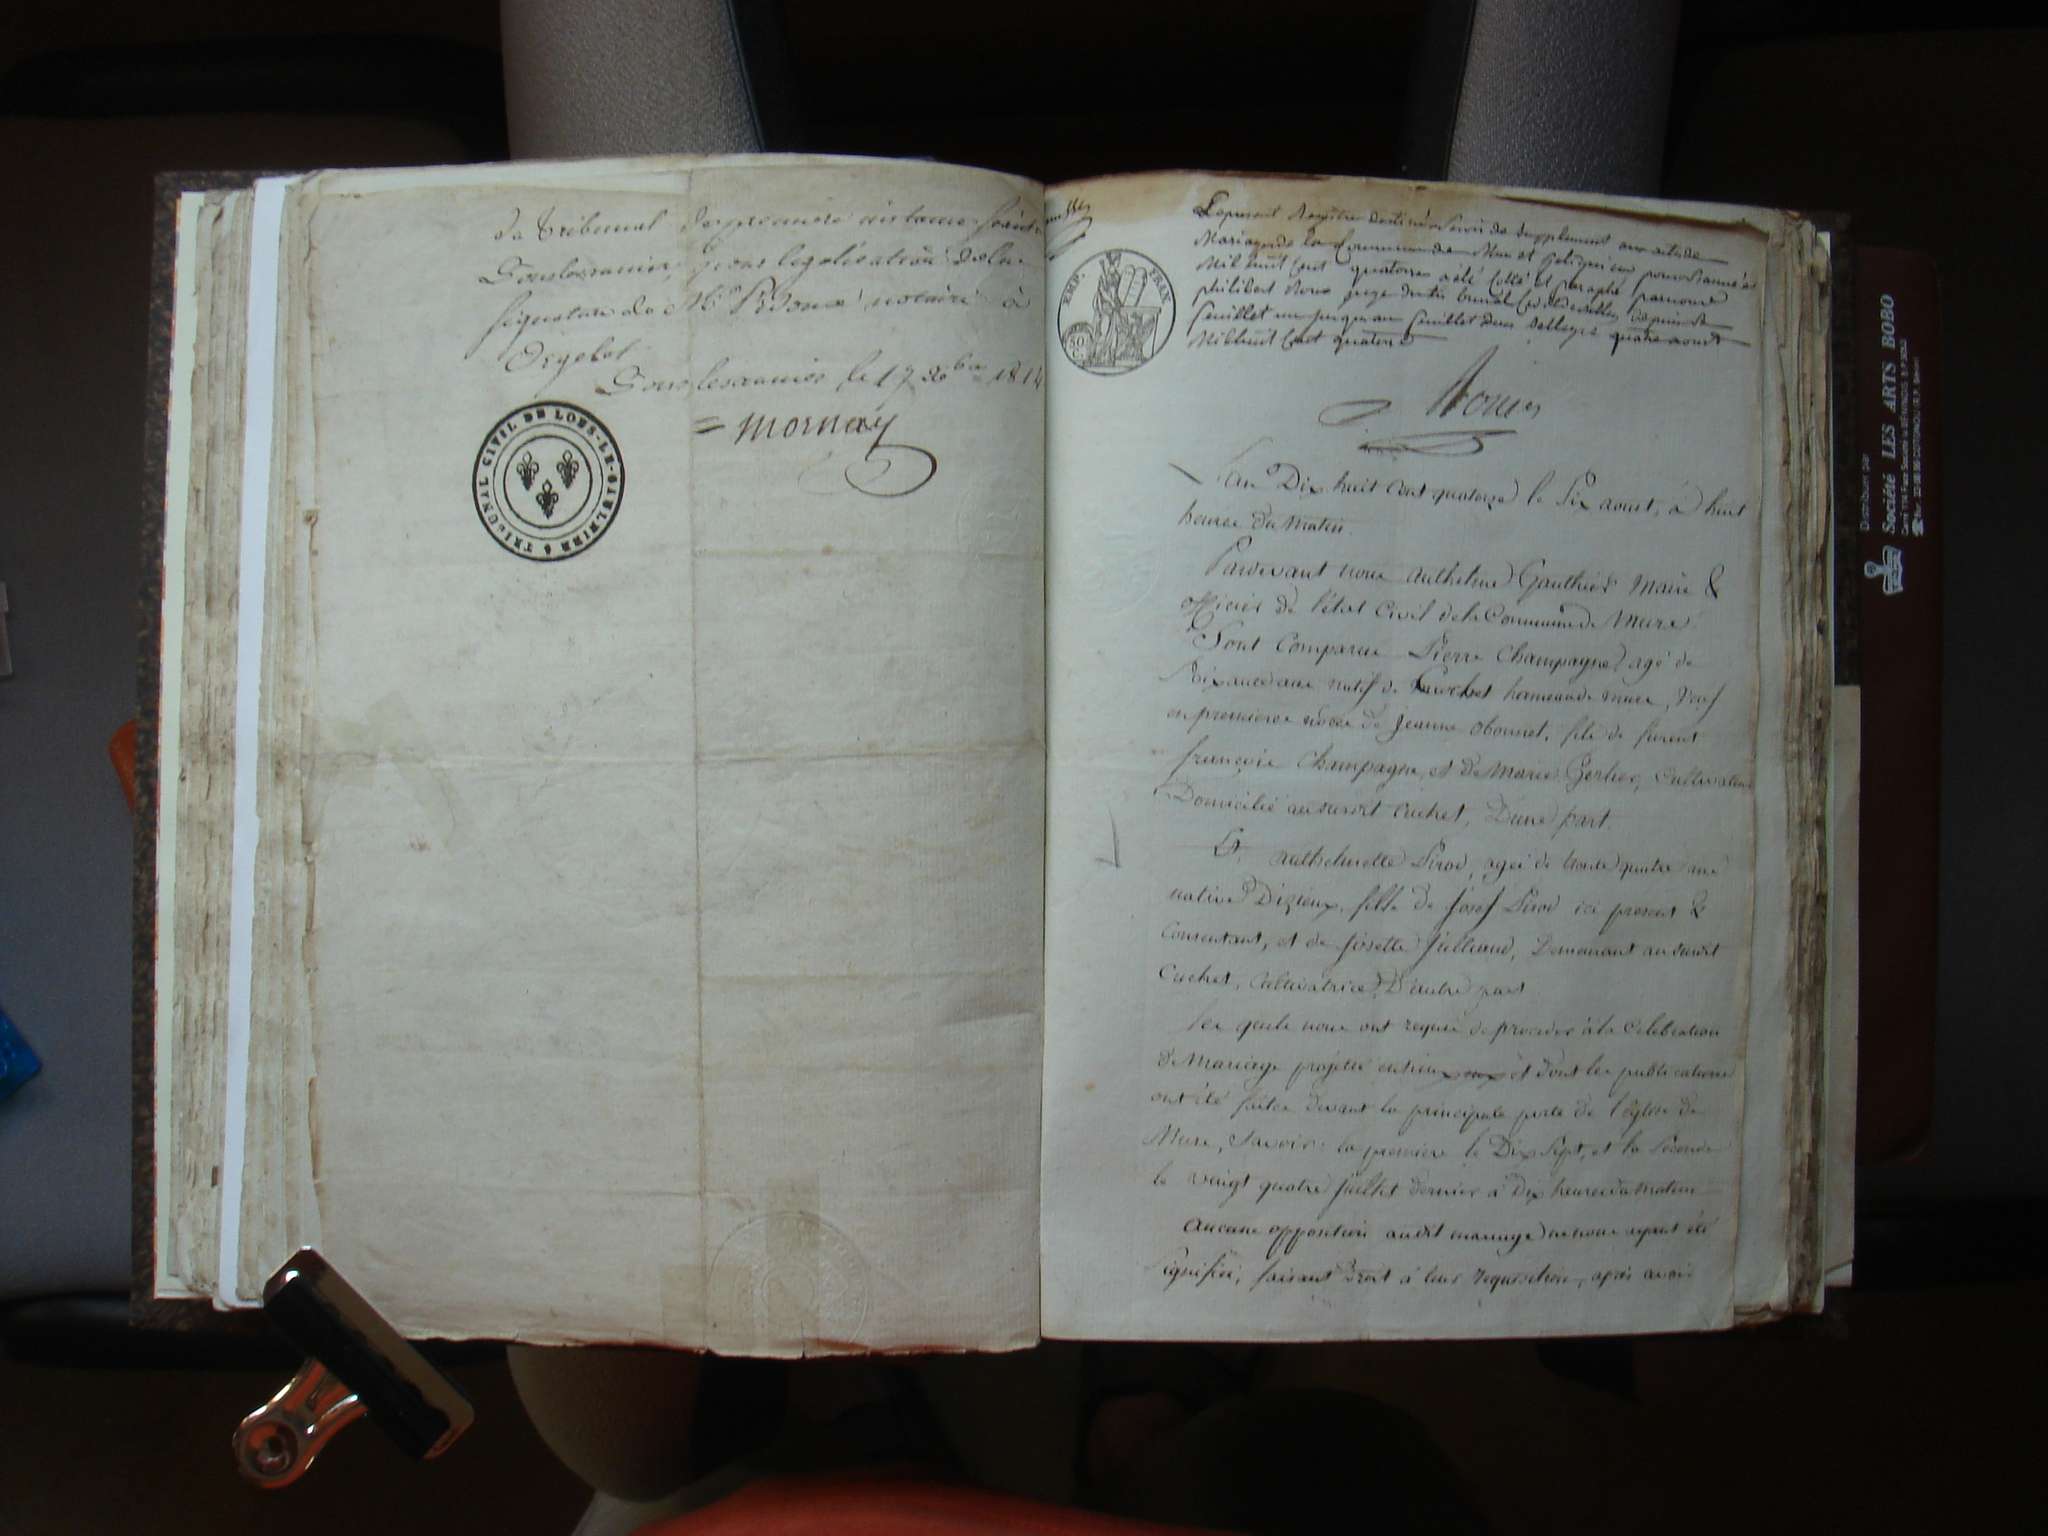 de tribunal de première instance séant à
Lons-le-saunier, pour légalisation de la
signature de Me notaire à
Orgelet
Lons-le-saunier le 17 1814
Mornay
TRIBUNAL CIVIL DE LONS-LE-SAULNIER
Le présent Registre destiné à servir de supplément aux actes de
Mariage de la Commune de pour l'année
Mil huit Cent quatorze a été Cotté et paraphé par nous
philibert juge du tribunal Civil depuis le
feuillet un jusqu'au feuillet deux quatre aoust
Mil huit Cent quatorze
EMP. FRAN.
50 C.
L'an Dix huit Cent quatorze le Six aoust, à huit
heures du Matin.
Pardevant nous Anthelme Gauthier Maire &
officier de l'état Civil de la Commune de Mure.
Sont Comparus Pierre Champagne agé de
ans natif de hameau de Mure, Veuf
en premières noces de Jeanne Bonnet, fils de furent
françois Champagne, et de Marie Gerbes, Cultivateur
Domicilié au susdit Cuchet, D'une part.
Et, Anthelmette Pirod, agée de trente quatre ans
native D'izieux, fille de Josef Pirod ici present &
Consentant, et de Josette Julliand, Demeurant au susdit
Cuchet, Cultivatrice, D'autre part
Les quels nous ont requis de proceder à la Celebration
de Mariage projetté entr'eux et dont les publications
ont été faites devant la principale porte de l'église de
Mure, Savoir: la première le Dix Sept, et la Seconde
le vingt quatre Juillet dernier à Dix heures du matin
Aucune opposition au dit mariage ne nous ayant été
Signifiée, faisant Droit à leur requisition, après avoir
Distribué par
Société LES ARTS BOBO